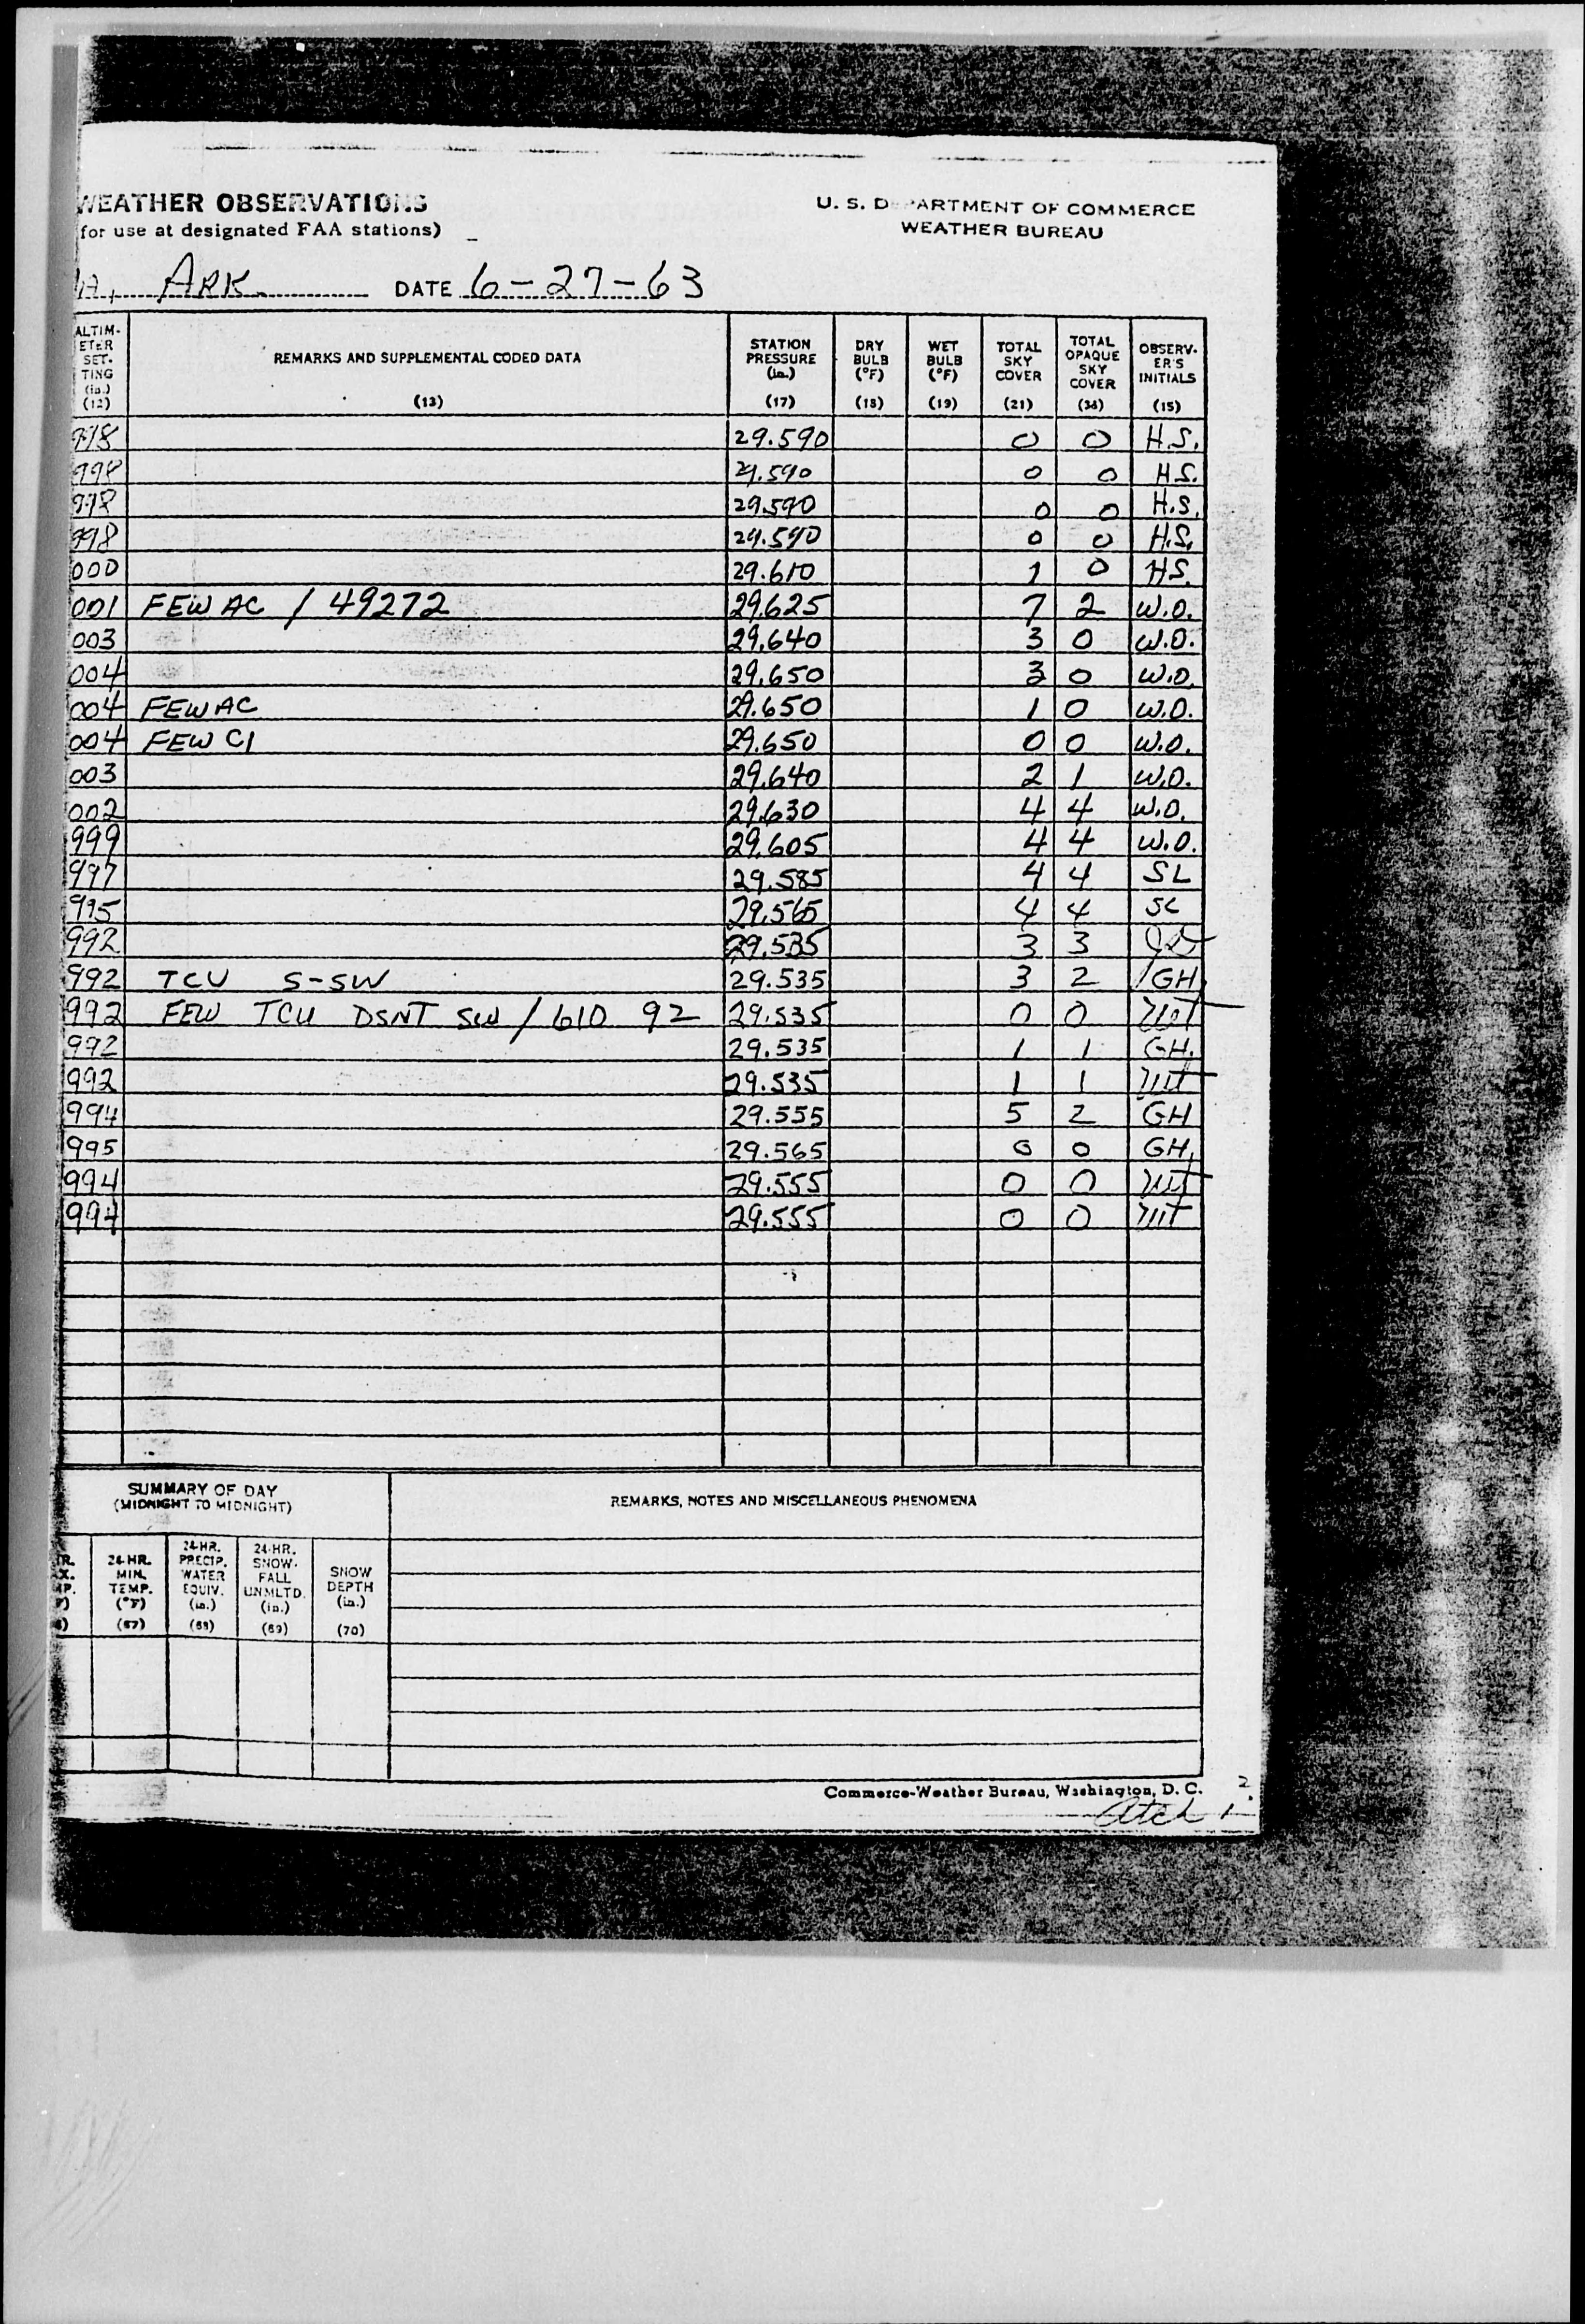 WEATHER OBSERVATIONS
(for use at designated FAA stations)
U. S. DEPARTMENT OF COMMERCE
WEATHER BUREAU
A, ARK. DATE 6-27-63
ALTIM-ETER SET-TING (in.) (12) REMARKS AND SUPPLEMENTAL CODED DATA (13) STATION PRESSURE (in.) (17) DRY BULB (°F) (18) WET BULB (°F) (19) TOTAL SKY COVER (21) TOTAL OPAQUE SKY COVER (36) OBSERV-ER'S INITIALS (15)
998 29.590 0 0 H.S.
998 29.590 0 0 H.S.
998 29.590 0 0 H.S.
998 29.590 0 0 H.S.
000 29.610 1 0 HS.
001 FEW AC / 49272 29.625 7 2 W.O.
003 29.640 3 0 W.O.
004 29.650 3 0 W.O.
004 FEW AC 29.650 1 0 W.O.
004 FEW CI 29.650 0 0 W.O.
003 29.640 2 1 W.O.
002 29.630 4 4 W.O.
999 29.605 4 4 W.O.
997 29.585 4 4 SL
995 29.565 4 4 SL
992 29.535 3 3
992 TCU S-SW 29.535 3 2 GH
992 FEW TCU DSNT SW / 610 92 29.535 0 0
992 29.535 1 1 GH.
992 29.535 1 1
994 29.555 5 2 GH
995 29.565 0 0 GH
994 29.555 0 0
994 29.555 0 0
SUMMARY OF DAY
(MIDNIGHT TO MIDNIGHT)
REMARKS, NOTES AND MISCELLANEOUS PHENOMENA
24-HR. MIN. TEMP. (°F) (67) 24-HR. PRECIP. WATER EQUIV. (in.) (68) 24-HR. SNOW-FALL UNMLTD. (in.) (69) SNOW DEPTH (in.) (70)
Commerce-Weather Bureau, Washington, D. C.
2
Atch 1